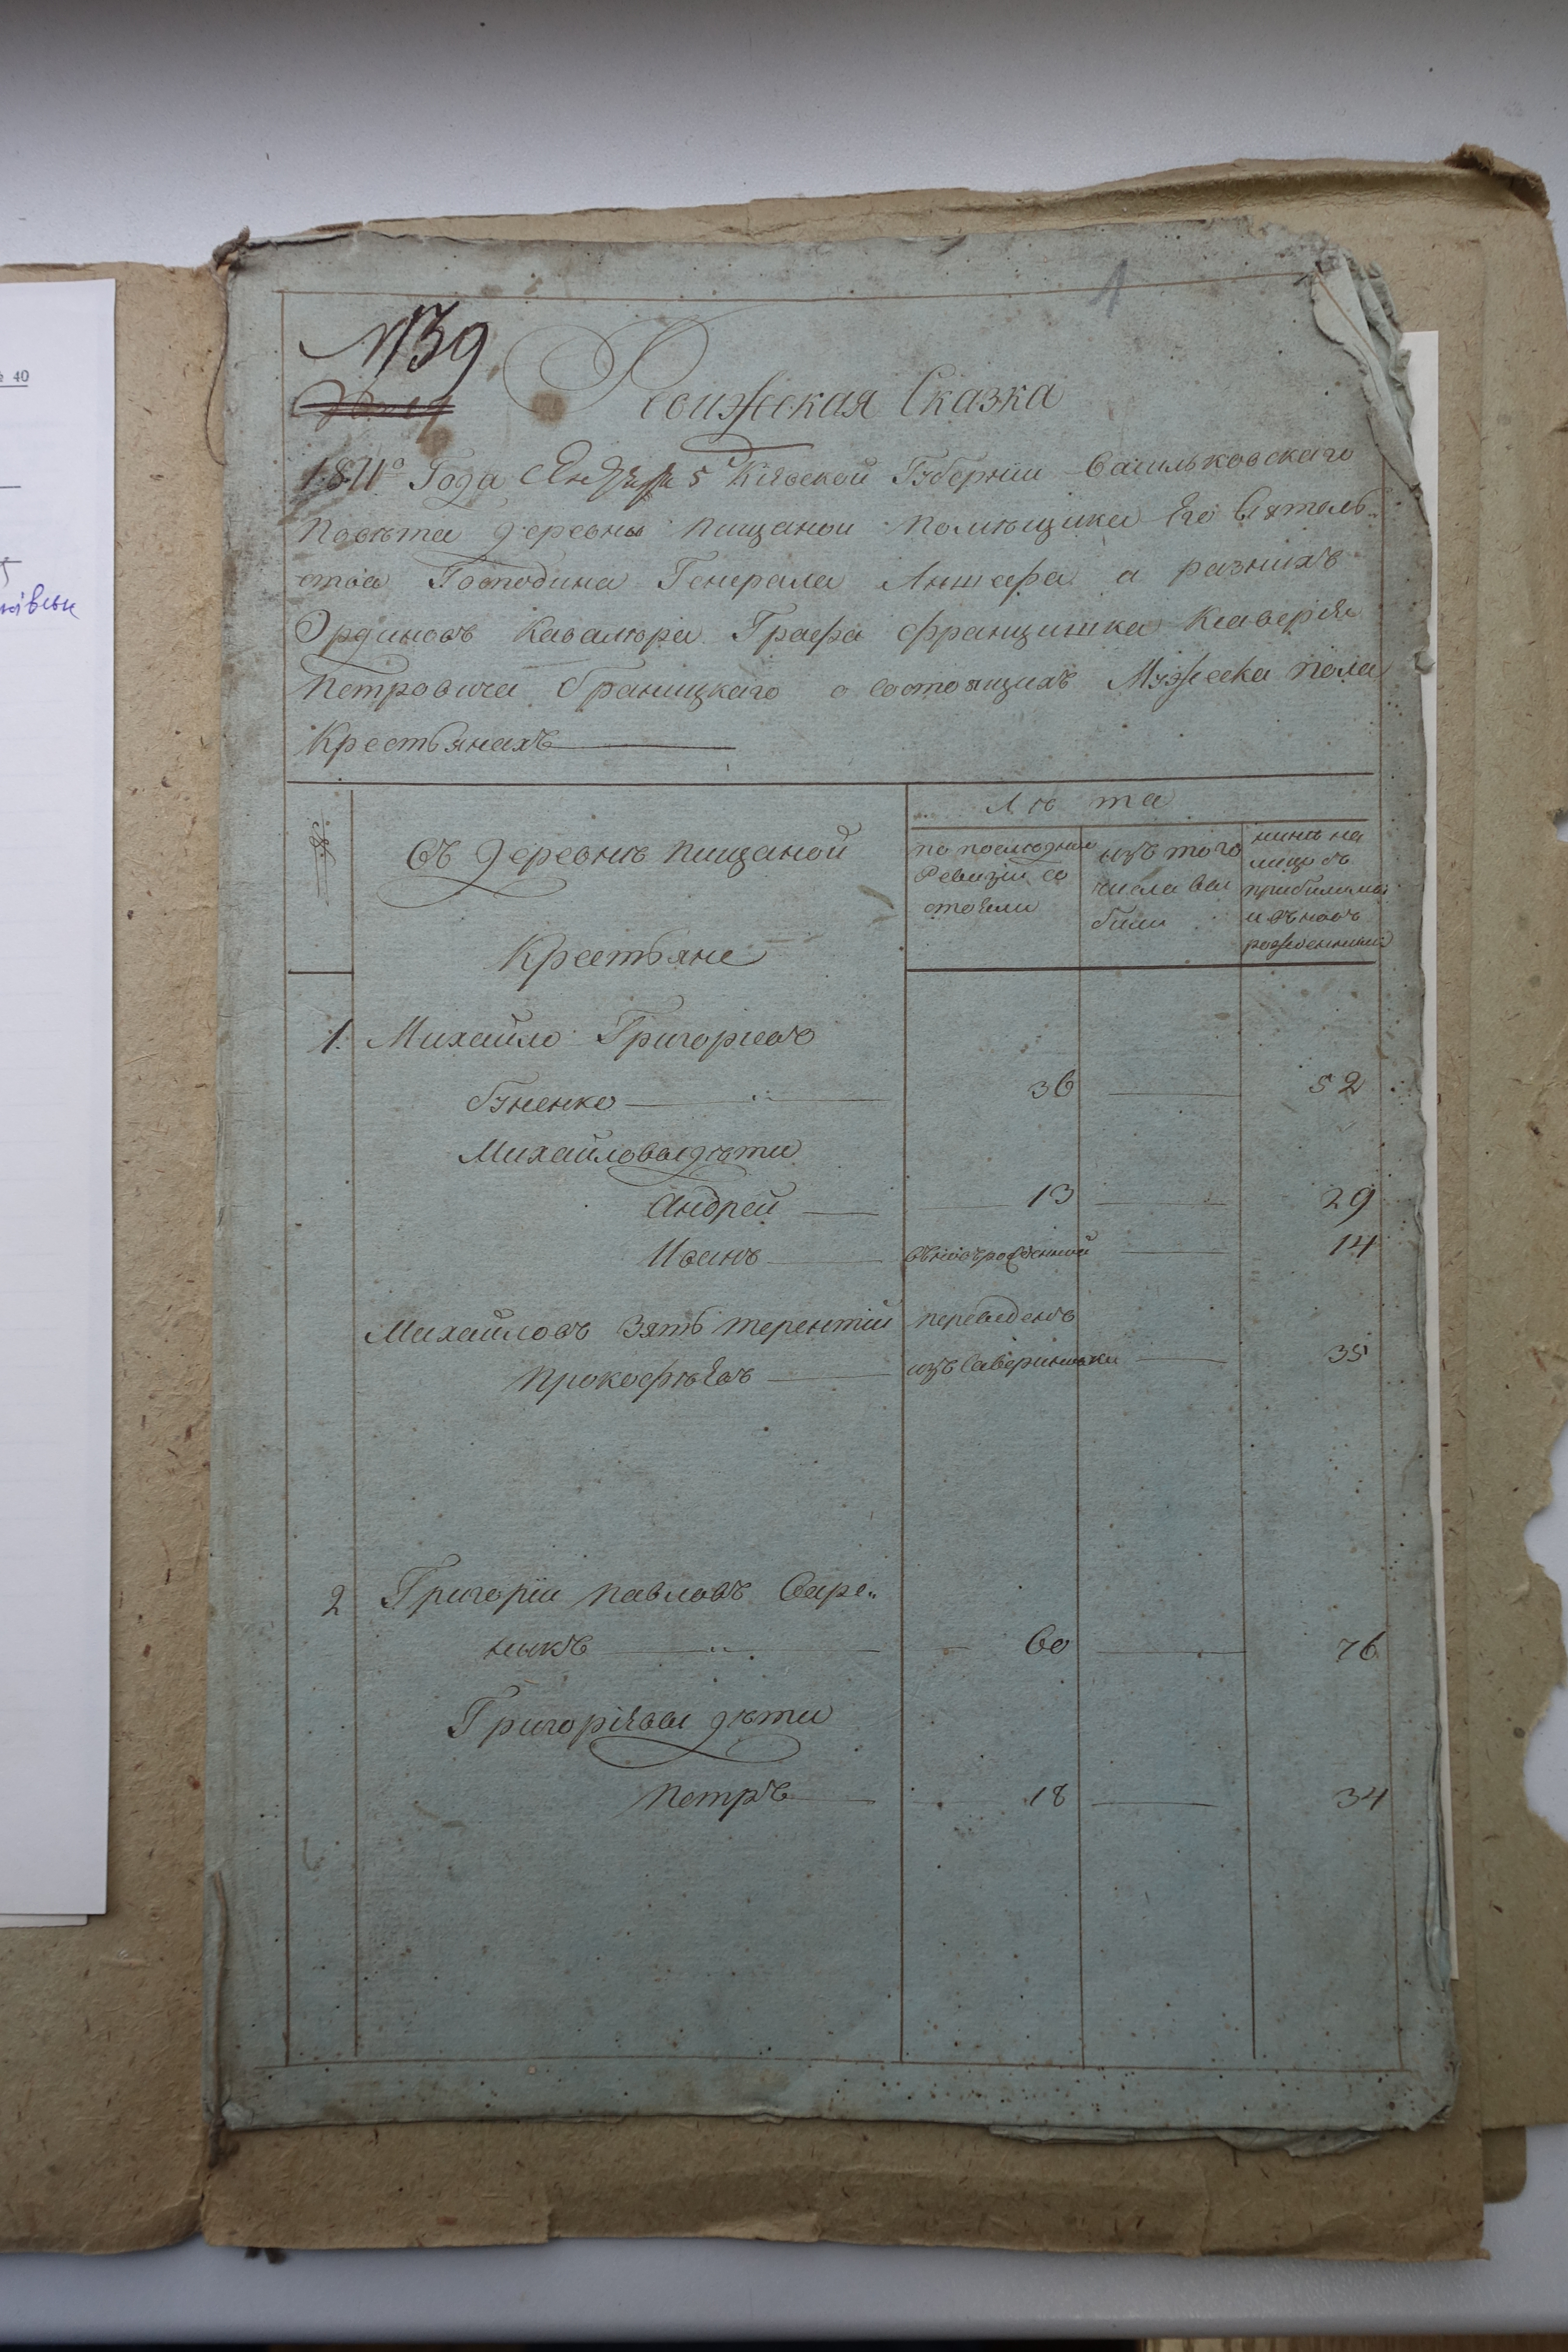 № 40
1
№39
Ревижская Сказка
1811го Года Января 5 Кіевской Губерніи Васильковского
Повѣта деревны Пищаной Помѣщика Его Сіятель
ства Господина Генерала Аншефа и разнихъ
Ординовъ Кавалѣра Графа Францишка Ксаверія
Петровича Браницкаго о состоящихъ Мужеска пола
Крестьянахъ
Лѣта
№
Въ деревнѣ Пищаной
по последней
Ревизіи со
стояли
изъ того
числа вы
били
нинѣ на
лицо съ
прибилими
и вновъ
рожденними
Крестьяне
1. Михайло Григорьевъ
Буненко 36 52
Михайловы дѣти
Андрей 13 29
Иванъ вновърожденной 14
Михайловъ Зять Терентій переведенъ
Прокофѣевъ изъ 35
2 Григорій Павловъ Варе„
никъ 60 76
Григоріевы дѣти
Петръ 18 34